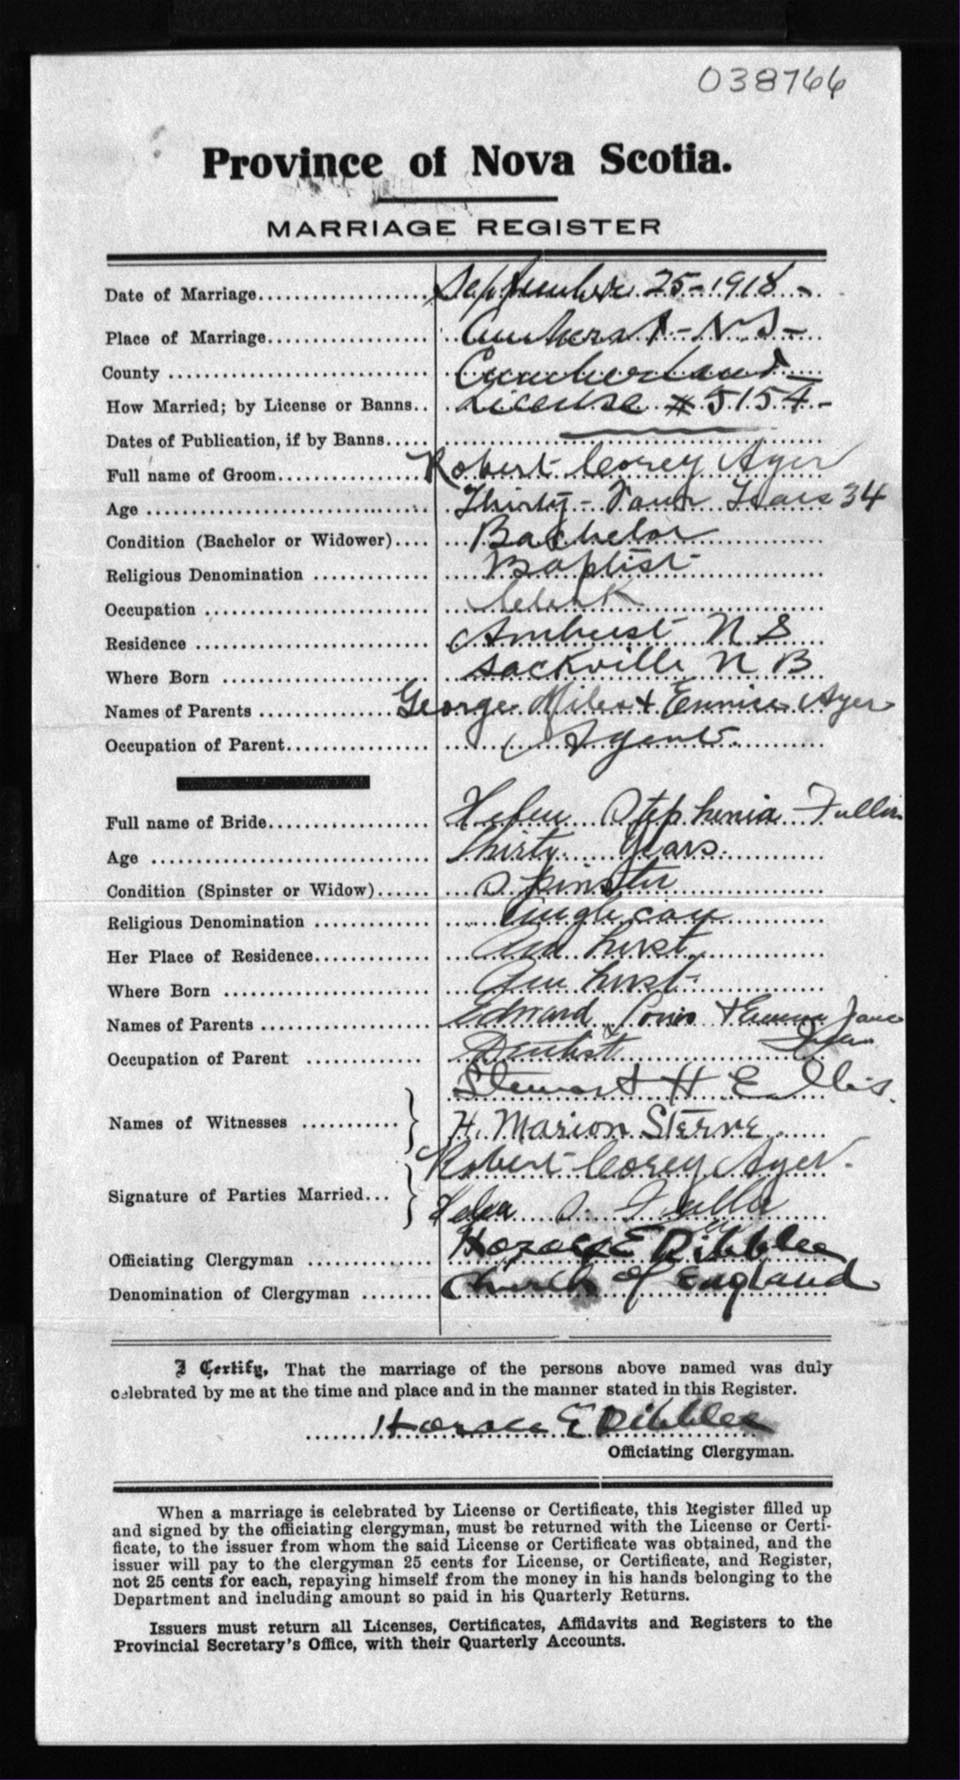 038766
Province of Nova Scotia.
MARRIAGE REGISTER
Date of Marriage.................... September 25-1918-
Place of Marriage................... Amherst-NS-
County ........................... Cumberland-
How Married; by License or Banns.. License #5154-
Dates of Publication, if by Banns.....
Full name of Groom.................. Robert Corey Ayer
Age ............................. Thirty-Four Years 34
Condition (Bachelor or Widower).... Bachelor
Religious Denomination ............. Baptist
Occupation ......................... Clerk
Residence .......................... Amherst N S
Where Born ........................ Sackville N B
Names of Parents ................... George Miles & Eunice Ayer
Occupation of Parent................ Agent
Full name of Bride.................. Helen Stephenia Fuller
Age ............................. Thirty Years
Condition (Spinster or Widow)...... Spinster
Religious Denomination ............. Anglican
Her Place of Residence............. Amherst
Where Born ........................ Amherst-
Names of Parents ................... Edward & Emma Jane
Occupation of Parent .............. Dentist
Names of Witnesses ........... } Stewart H Ellis.
H. Marion Sterne
Signature of Parties Married... } Robert Corey Ayer.
Helen S. Fuller
Officiating Clergyman .............. Horace E Dibblee
Denomination of Clergyman ........ Church of England
I Certify, That the marriage of the persons above named was duly
celebrated by me at the time and place and in the manner stated in this Register.
Horace E Dibblee
Officiating Clergyman.
When a marriage is celebrated by License or Certificate, this Register filled up
and signed by the officiating clergyman, must be returned with the License or Certi-
ficate, to the issuer from whom the said License or Certificate was obtained, and the
issuer will pay to the clergyman 25 cents for License, or Certificate, and Register,
not 25 cents for each, repaying himself from the money in his hands belonging to the
Department and including amount so paid in his Quarterly Returns.
Issuers must return all Licenses, Certificates, Affidavits and Registers to the
Provincial Secretary's Office, with their Quarterly Accounts.